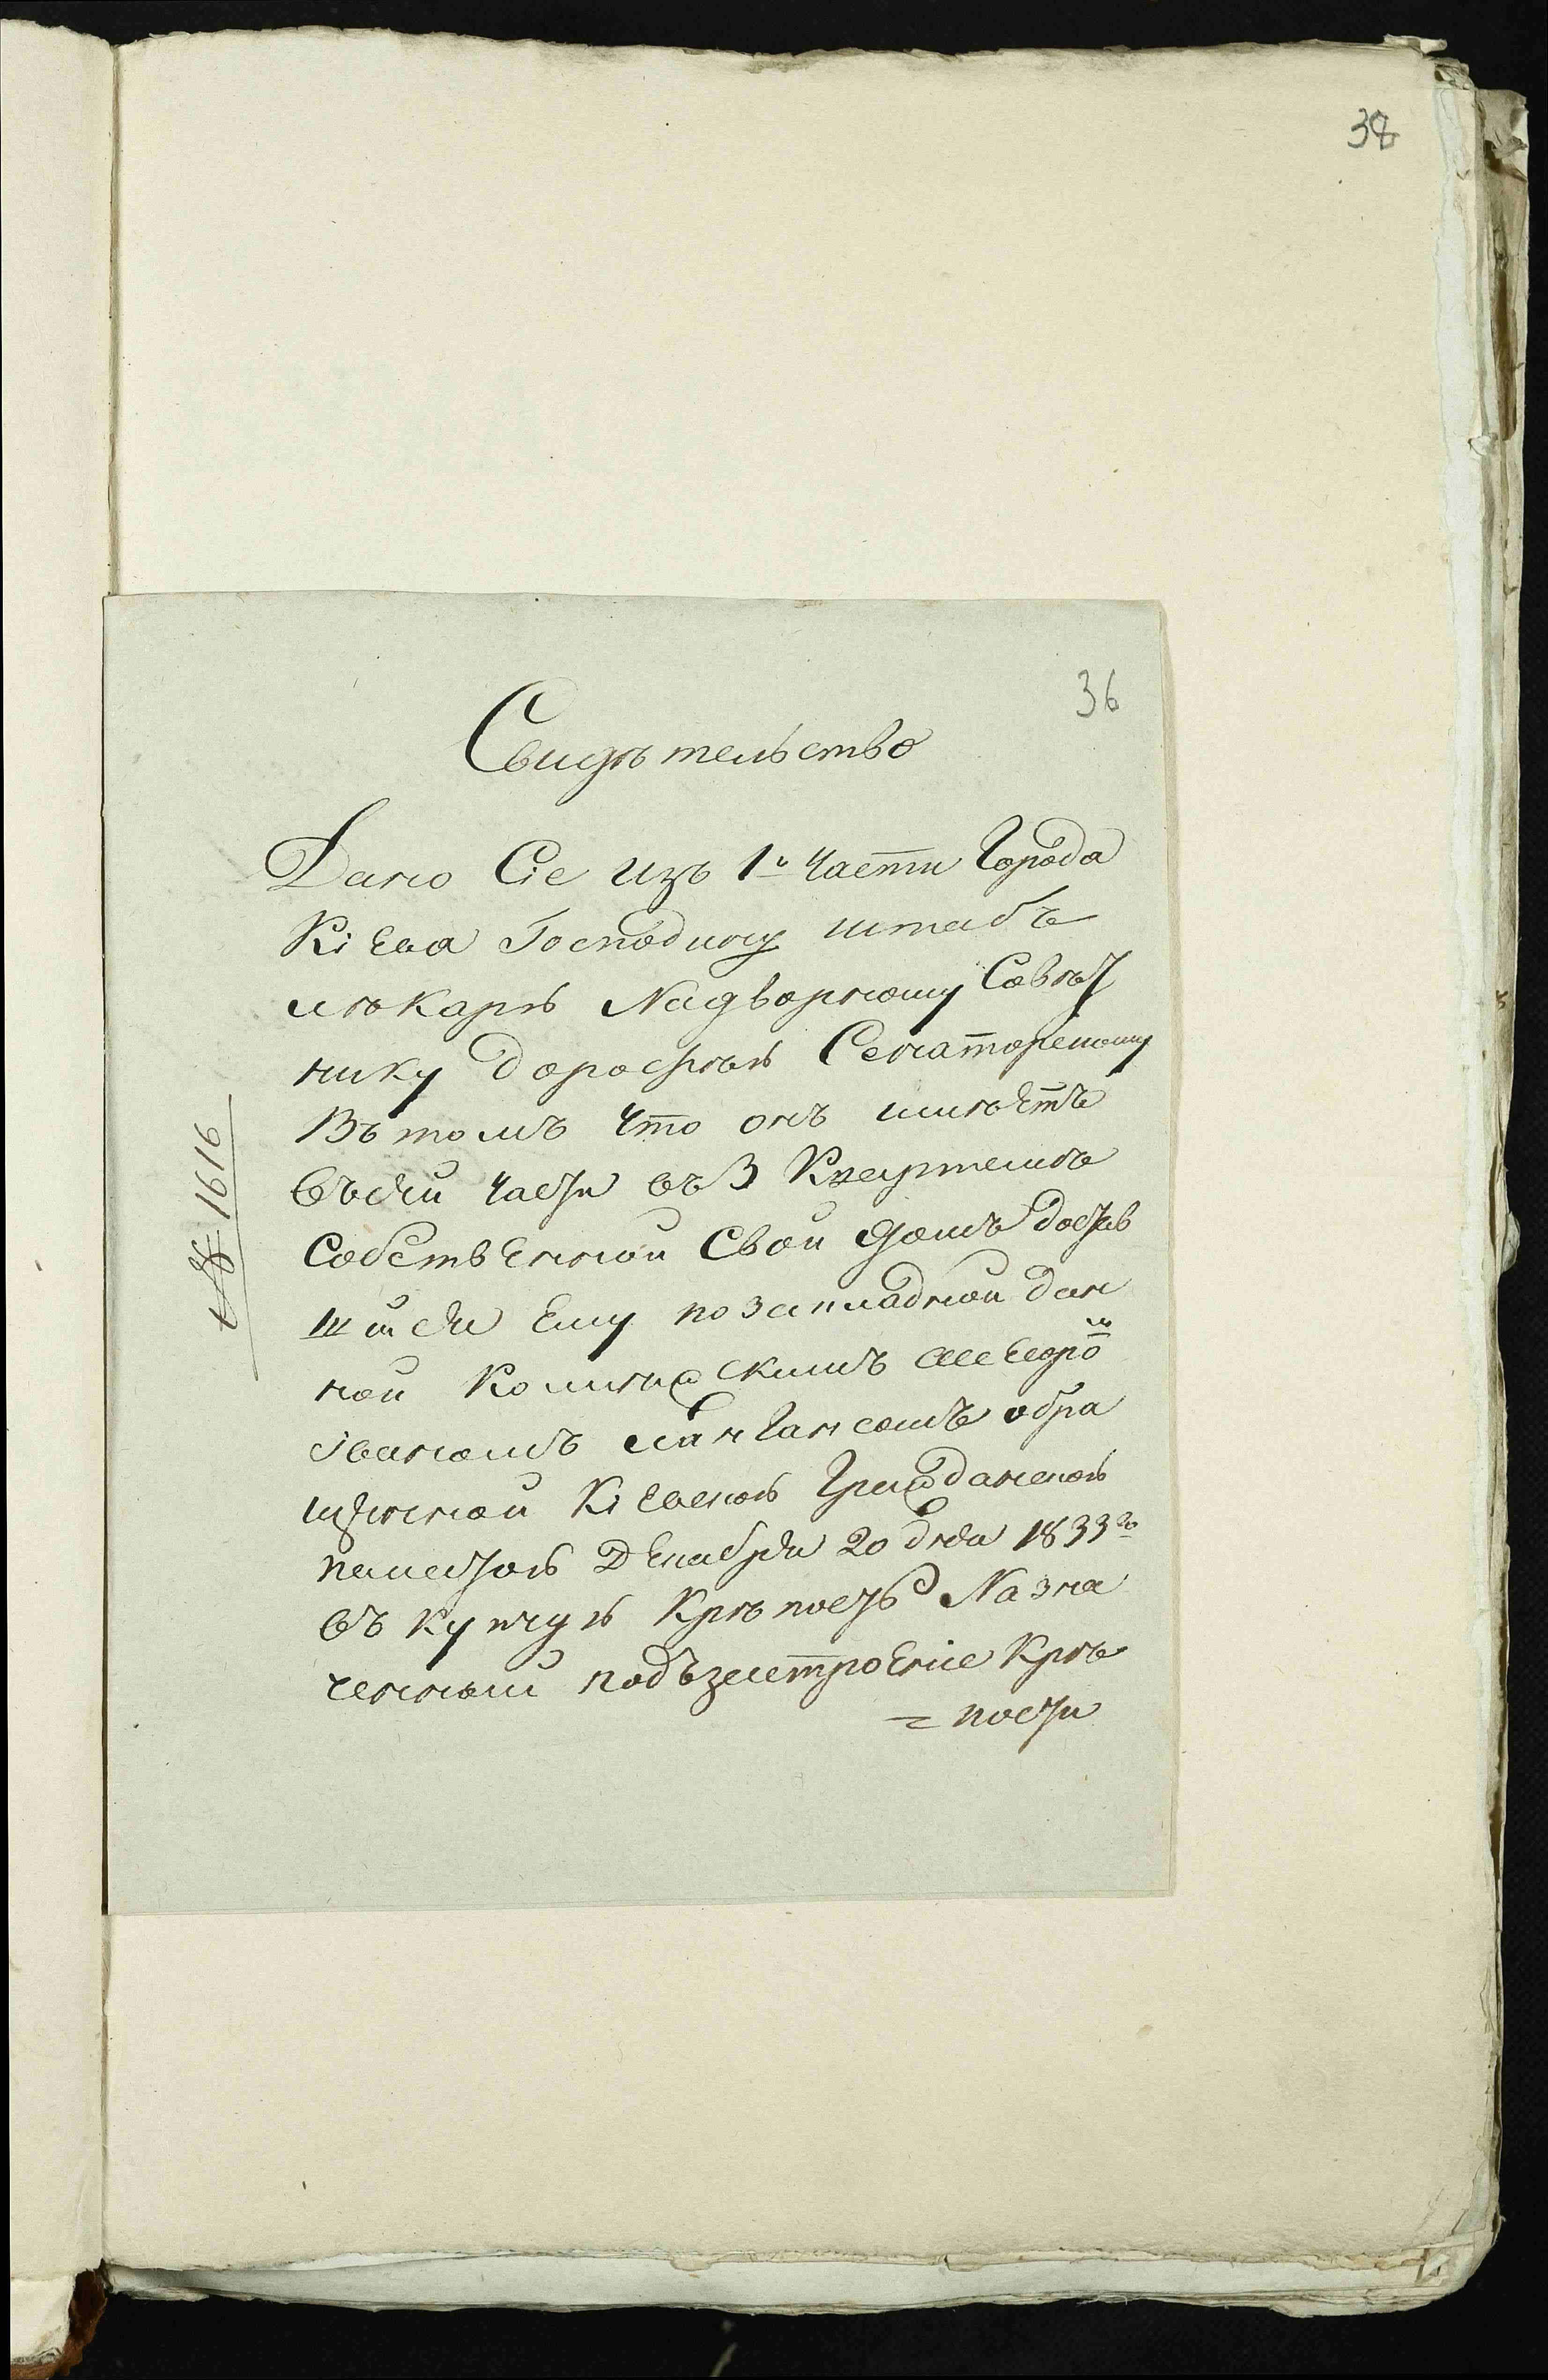 38
36
Свидѣтельство
Дано Сіе изъ 1й Части Города
Кіева Господину штабъ
лѣкарю Надворному Совѣт
нику Дорофѣю Сенаторскому
Въ томъ что онъ имѣетъ
въсей части въ 3 Кварталѣ
Собственной Свой домъ достав
шійся Ему по закладной дан
ной
званомъ обра
щенной Кіевской Гражданской
палатой Декабря 20 дня 1833го
въ купчую Крѣпость Назна
ченный подъ застроеніе Крѣ
= пости
№ 1616